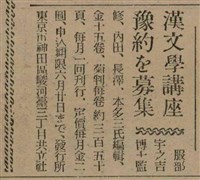 漢文學講座
豫約を募集
服部
宇之吉
博士監
修、内田、長澤、本多三氏編輯、
全十五卷、菊判每卷約三百五十
頁、每月一回刊行、定價每月金二
圓、申込期限六月廿日まで、發行所
東京市神田區駿河臺三丁目共立社